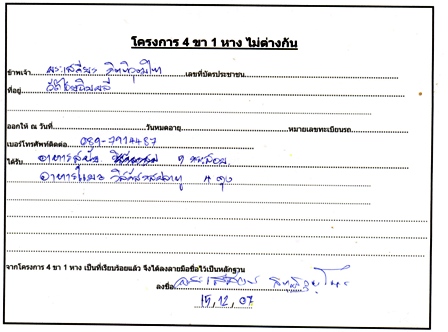 โครงการ 4 ขา 1 หาง ไม่ต่างกัน
ข้าพเจ้า พระเสถียร เลขที่บัตรประชาชน
ที่อยู่
ออกให้ ณ วันที่ วันหมดอายุ หมายเลขทะเบียนรถ
เบอร์โทรศัพท์ติดต่อ 089-7914487
ได้รับ อาหารสุนัข 9 กระสอบ
อาหารแมว 4 ถุง
จากโครงการ 4 ขา 1 หาง เป็นที่เรียบร้อยแล้ว จึงได้ลงลายมือชื่อไว้เป็นหลักฐาน
ลงชื่อ
15, 12, 07